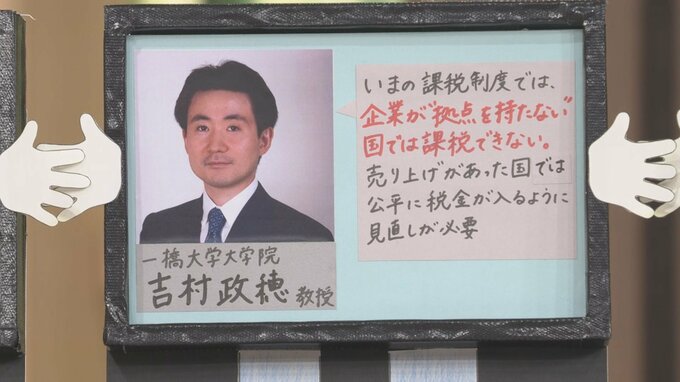 いまの課税制度では、
企業が"拠点を持たない"
国では課税できない。
売り上げがあった国では
公平に税金が入るように
見直しが必要
一橋大学大学院
吉村政穂 教授